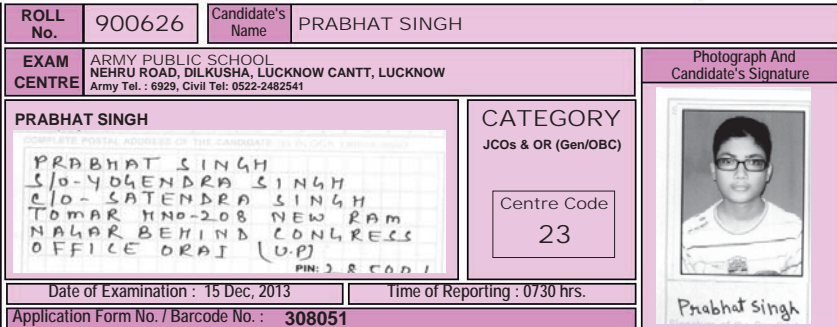 ROLL No. 900626 Candidate's Name PRABHAT SINGH
EXAM CENTRE
ARMY PUBLIC SCHOOL
NEHRU ROAD, DILKUSHA, LUCKNOW CANTT, LUCKNOW
Army Tel. : 6929, Civil Tel: 0522-2482541
Photograph And
Candidate's Signature
PRABHAT SINGH
COMPLETE POSTAL ADDRESS OF THE CANDIDATE
PRABHAT SINGH
S/O-YOGENDRA SINGH
C/O- SATENDRA SINGH
TOMAR HNO-208 NEW RAM
NAGAR BEHIND CONGRESS
OFFICE ORAI (U.P)
PIN: 285001
CATEGORY
JCOs & OR (Gen/OBC)
Centre Code
23
Prabhat Singh
Date of Examination : 15 Dec, 2013 Time of Reporting : 0730 hrs.
Application Form No. / Barcode No. : 308051